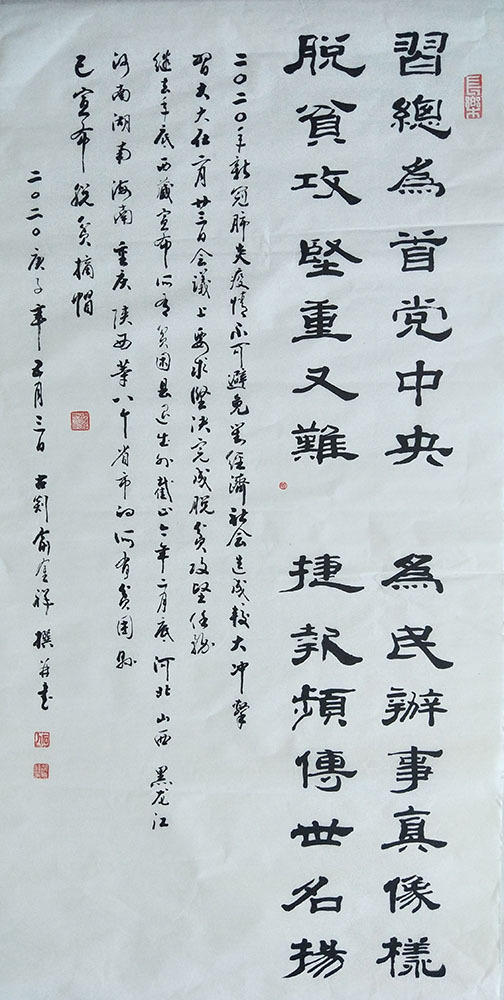 習總為首党中央　為民辦事真像樣
脱貧攻堅重又難　捷報頻傳世名揚
二〇二〇年新冠肺炎疫情不可避免, 对經濟社会造成較大冲擊
習大大在二月廿三日会議上要求堅决完成脱贫攻堅任務
继去年底西藏宣布所有贫困县退出外截止今年二月底河北山西黑龙江
河南湖南海南重庆陕西等八个省市的所有贫困縣
已宣布脱贫摘帽
二〇二〇庚子年五月三日古剑俞金祥撰并书